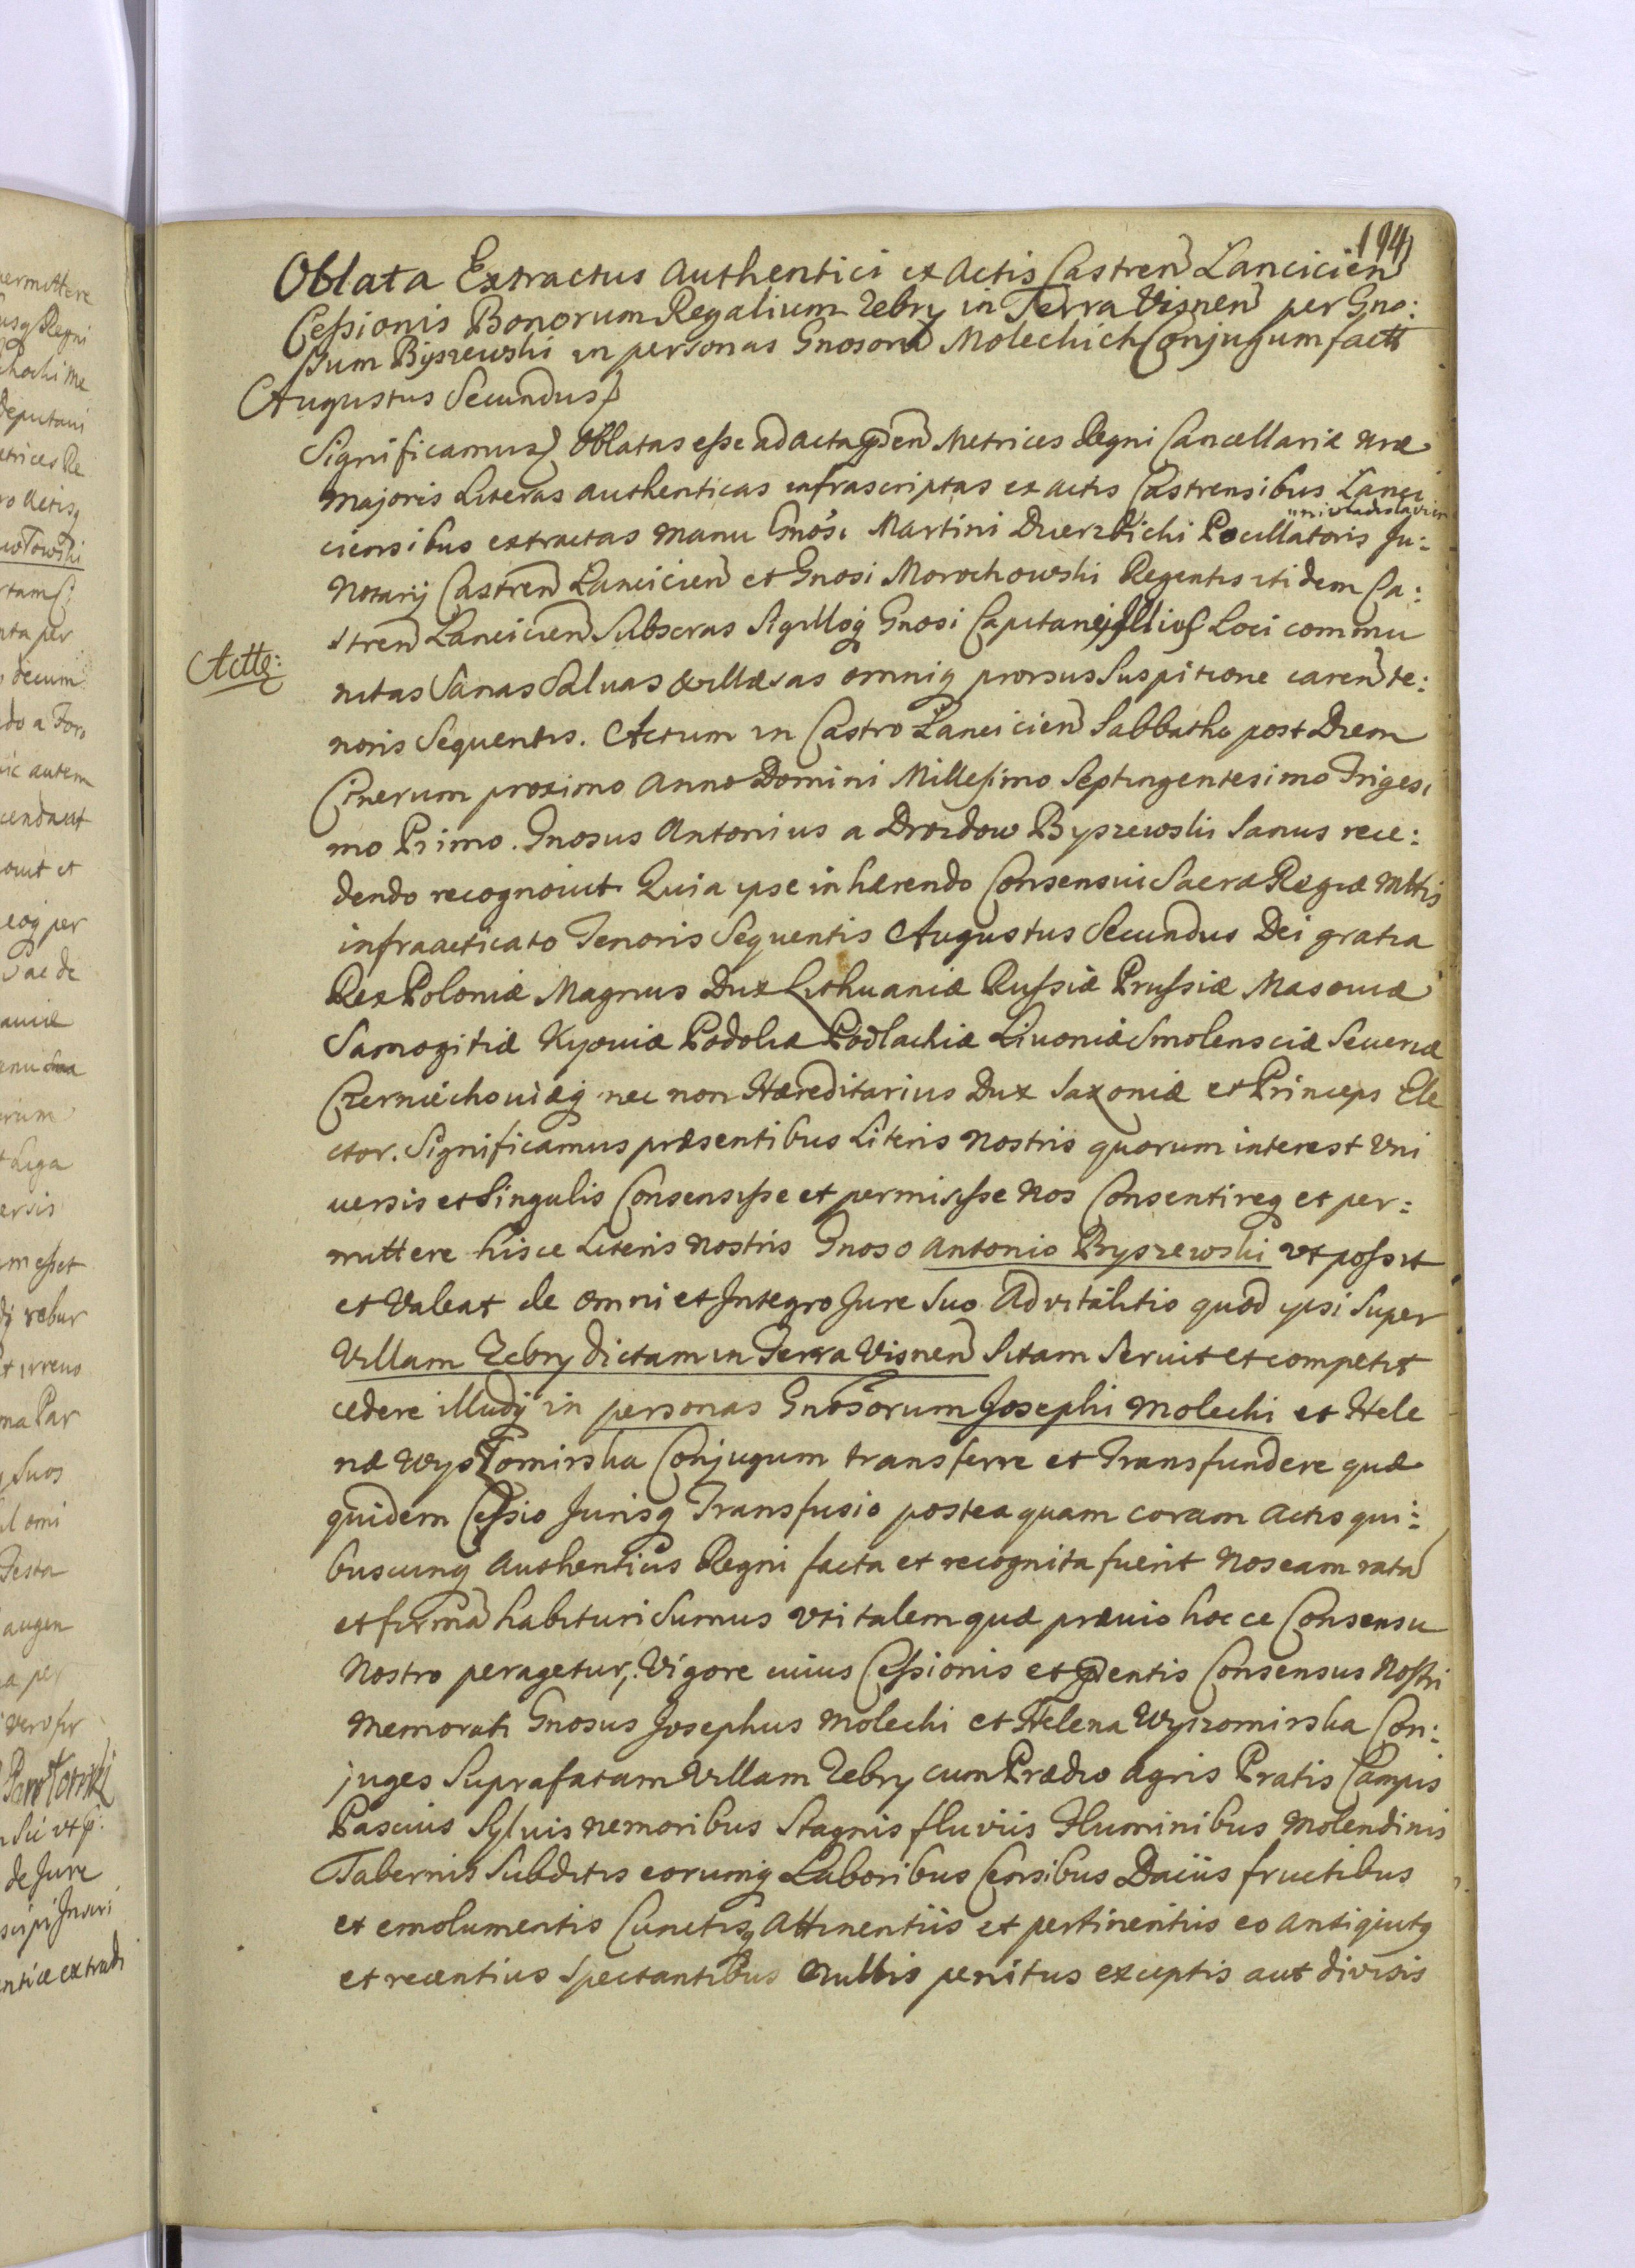 194
Oblata Extractus Authentici ex Actis Castren Lancicien
Cessionis Bonorum Regalium Zebry in Terra Visnen per Gno:
sum Byszewski in personas Gnosorum Molechich Conjugum fact
Augustus Secundus
Significamus Oblatas esse ad acta pnden Metrices Regni Cancellariæ nræ
Majoris Literas authenticas infrascriptas ex actis Castrensibus Lanci
ciensibus extractas manu Gnosi Martini Dzierzbichi Pocillatoris Ju:
iuniuladislavien
Notarij Castren Lancicien et Gnosi Morochowski Regentis itidem Ca:
stren Lancicien Subscras Sigilloq Gnosi Capitanej Illius Loci commu
Actt:
nitas Sanas Salvas & illæsas omniq prorsus Suspitione caren te:
noris Sequentis. Actum in Castro Lancicien Sabbatho post Diem
Cinerum proximo Anno Domini Millesimo Septingentesimo Trigesi
mo Primo. Gnosus Antonius a Drozdow Byszewski Sanus rece:
dendo recognovit Quia ipse inhærendo Consensui Sacræ Regiæ Mttis
infraacticato Tenoris Sequentis Augustus Secundus Dei gratia
Rex Poloniæ Magnus Dux Lithuaniæ Russiæ Prussiæ Masoviæ
Samogitiæ Kyoviæ Podoliæ Podlachiæ Livoniæ Smolensciæ Severiæ
Czerniechoviæq nec non Hæreditarius Dux Saxoniæ et Princeps Ele
ctor. Significamus præsentibus Literis nostris quorum interest Uni
versis et Singulis Consensisse et permisisse nos Consentireq et per:
mittere hisce Literis nostris Gnoso Antonio Byszewski ut possit
et Valeat de omni et Integro Jure Suo Advitalitio quod ipsi Super
Villam Zebry dictam in Terra Visnen Sitam Servit et competit
cedere illudq in personas Gnosorum Josephi Molechi et Hele
næ Wyszomirska Conjugum transferre et Transfundere quæ
quidem Cessio Jurisq Transfusio postea quam coram Actis qui:
buscunq Authenticis Regni facta et recognita fuerit nos eam rata
et firma habituri Sumus uti talem quæ prævio hocce Consensu
Nostro peragetur, Vigore cuius Cessionis et pntis Consensus Nostri
memorati Gnosus Josephus Molechi et Helena Wyszomirska Con:
juges Suprafatam Villam Zebry cum Prædio agris Pratis Campis
Pascuis Sylvis nemoribus Stagnis fluviis Fluminibus Molendinis
Tabernis Subditis eorumq Laboribus Censibus Daciis fructibus
et emolumentis Cunctisq Attinentiis et pertinentiis eo antiquitq
et recentius Spectantibus nullis penitus exceptis aut divisis